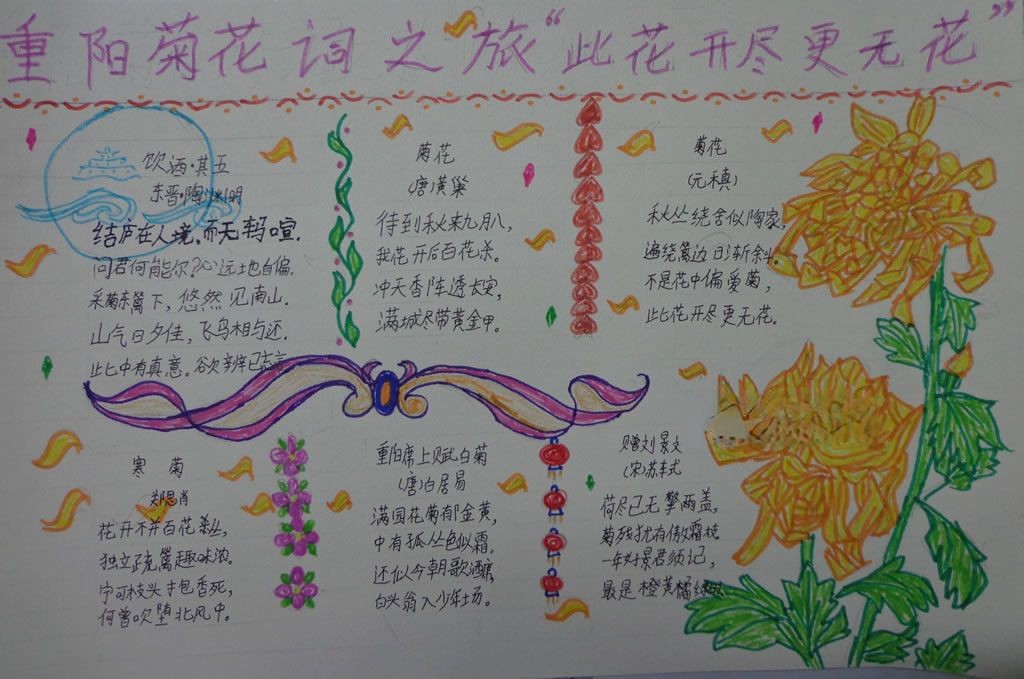 重阳菊花词之旅“此花开尽更无花”
饮酒·其五
东晋·陶渊明
结庐在人境,而无车马喧.
问君何能尔?心远土也自偏.
采菊东篱下,悠然见南山.
山气日夕佳,飞鸟相与还.
此中有真意。欲辨已忘言
菊花
(唐)黄巢
待到秋来九月八,
我花开后百花杀。
冲天香阵透长安,
满城尽带黄金甲。
菊花
(元稹)
秋丛绕舍似陶家,
遍绕篱边日斩斜。
不是花中偏爱菊,
此花开尽更无花。
寒菊
郑思肖
花开不并百花丛,
独立疏篱趣味浓。
宁可枝头抱香死,
何曾吹堕北风中。
重阳席上赋白菊
(唐)白居易
满园花菊郁金黄,
中有孤丛色似霜。
还似今朝歌酒席,
白头翁入少年场。
赠刘景文
(宋)苏轼
荷尽已无擎雨盖,
菊残犹有傲霜枝
一年好景君须记,
最是橙黄橘绿